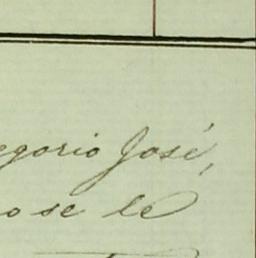 egorio José,
o se le